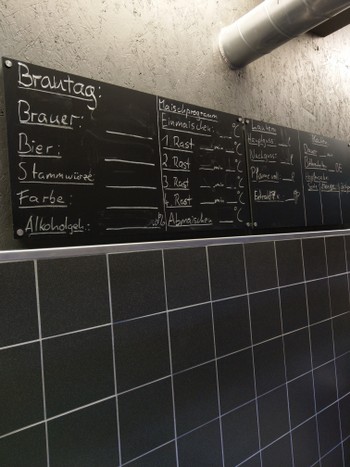 Brautag:
Brauer:
Bier:
Stammwürze
Farbe:
Alkoholgeh.: %
Maischprogramm
Einmaischen: °C
1. Rast min °C
2. Rast min °C
3. Rast min °C
4. Rast min °C
Abmaischen °C
Läutern
Hauptguss:
Nachguss
Pfanne voll
Dauer: